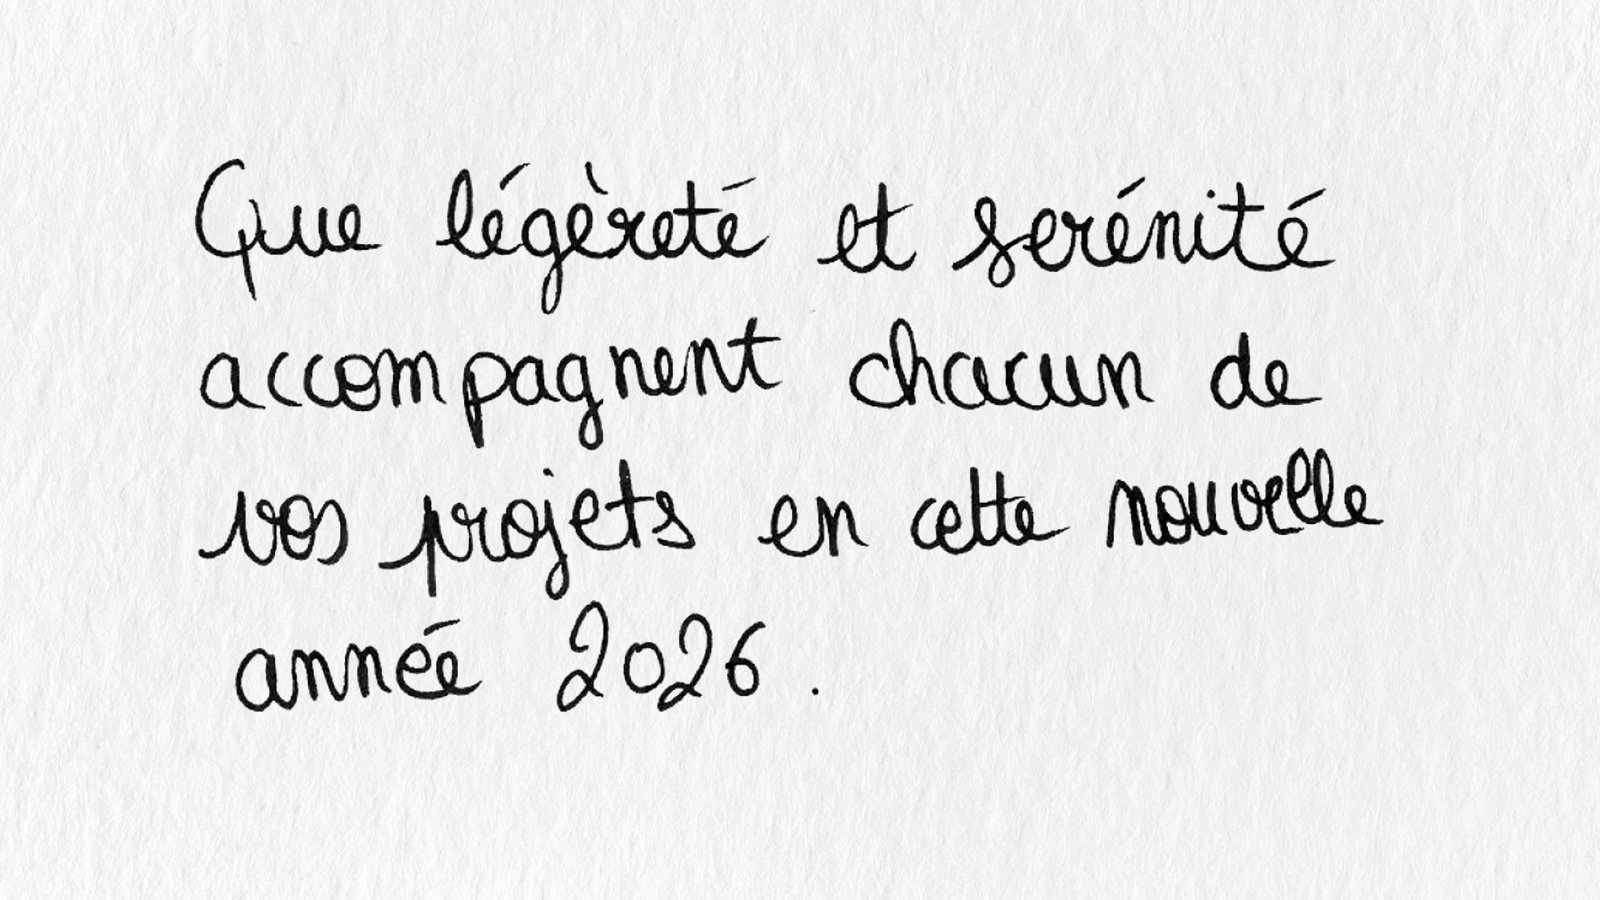 Que légèreté et serénité
accompagnent chacun de
vos projets en cette nouvelle
année 2026.